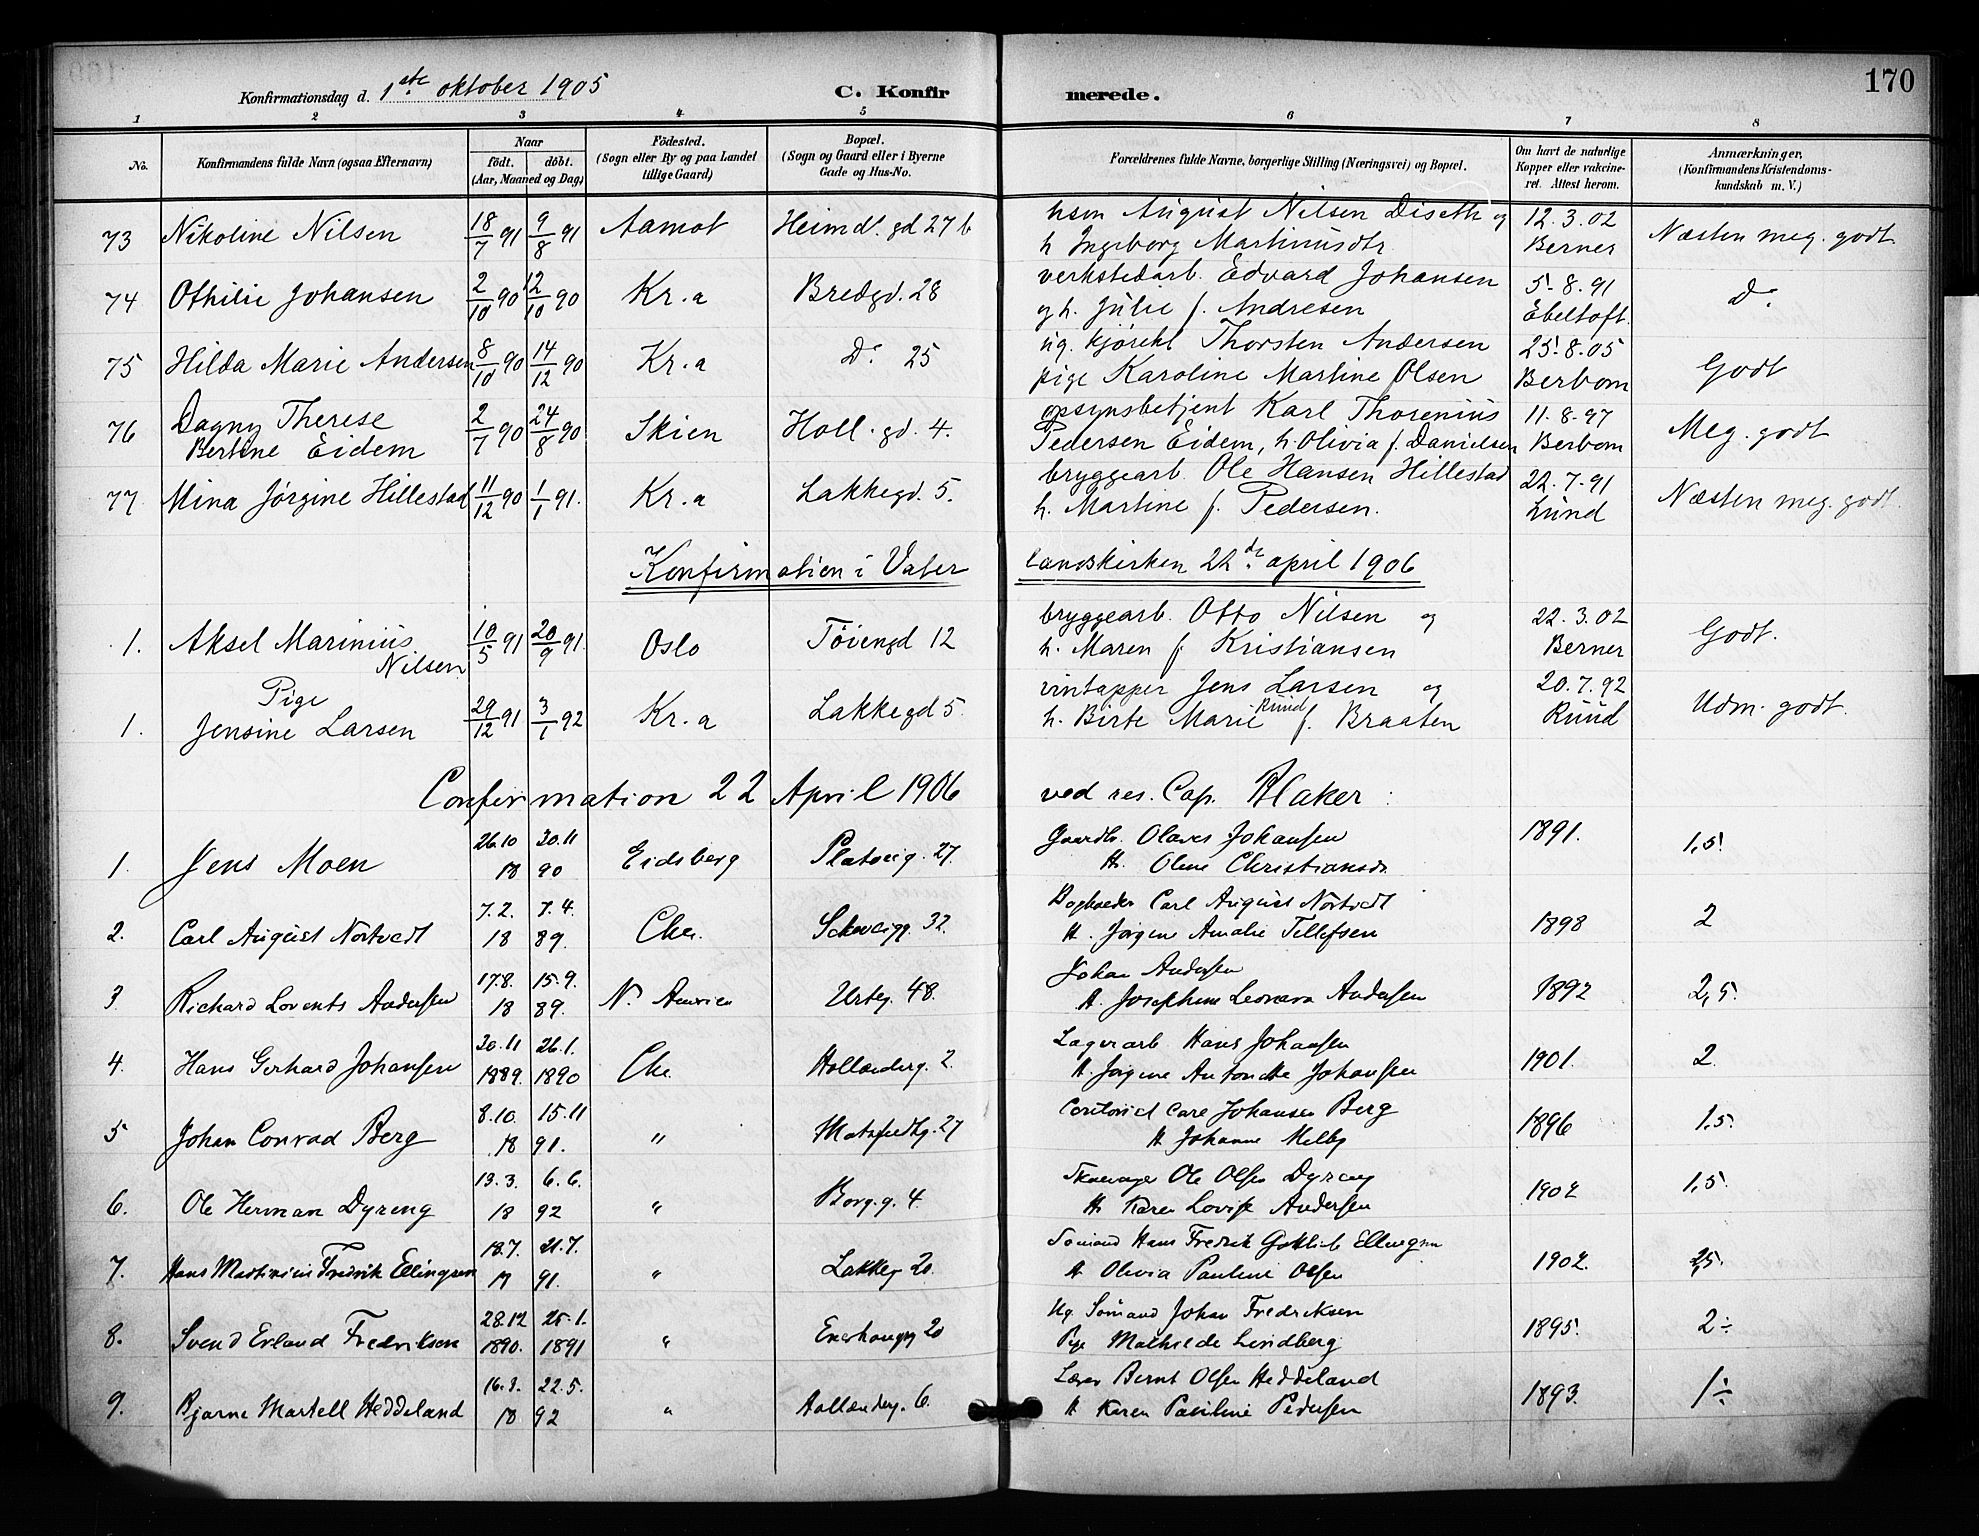 170
Konfirmationsdag d. 1ste oktober 1905 C. Konfirmerede.
1 2 3 4 5 6 7 8
No. Konfirmandens fulde Navn (ogsaa Efternavn) Naar födt. döbt. (Aar, Maaned og Dag) Födested. (Sogn eller By og paa Landet tillige Gaard) Bopæl. (Sogn og Gaard eller i Byerne Gade og Hus-No. Forældrenes fulde Navne, borgerlige Stilling (Næringsvei) og Bopæl. Om havt de naturlige Kopper eller vakcineret. Attest herom. Anmærkninger, (Konfirmandens Kristendomskundskab m. V.)
73 Nikoline Nilsen 18/7 91 9/8 91 Aamot Heimd. gd 27 b hsm August Nilsen Diseth og 12.3.02 Næsten meg. godt
h Ingeborg Martinusdtr. Berner
74 Othilie Johansen 2/10 90 12/10 90 Kr.a Bredgd. 28 verkstedarb. Edvard Johansen 5.8.91 Do
og h. Julie f. Andresen Ebeltoft.
75 Hilda Marie Andersen 8/10 90 14/12 90 Kr.a Do 25 ug. kjørekl Thorsten Andersen 25.8.05 Godt
pige Karoline Martine Olsen Berbom
76 Dagny Therese 2/7 90 24/8 90 Skien Holl. gd. 4. opsynsbetjent Karl Thorenius 11.8.97 Meg. godt
Bertine Eidem Pedersen Eidem, h. Olivia f. Danielsen Berbom
77 Mina Jørgine Hillestad 11/12 90 1/1 91. Kr.a Lakkegd. 5. bryggearb. Ole Hansen Hillestad 22.7.91 Næsten meg. godt.
h. Martine f. Pedersen. Lund
Konfirmation i Vaterlandskirken 22de april 1906
1. Aksel Marinius 10/5 91 20/9 91 Oslo Tøiengd 12 bryggearb. Otto Nilsen og 22.3.02 Godt.
Nilsen h. Maren f. Kristiansen Berner
Pige
1. Jensine Larsen 29/12 91 3/1 92 Kr.a Lakkegd 5. vintapper Jens Larsen og 20.7.92 Udm. godt.
h. Birte Marie Ruud f. Braaten Ruud
Confirmation 22 April 1906 ved res. Cap. Blaker:
1. Jens Moen 26.10 30.11 18 90 Eidsberg Platoug. 27. Gaardbr. Olaves Johansen 1891. 1,5.
H. Oline Christiansd.
2. Carl August Nortvedt 7.2. 7.4. 18 89. Chr. Schweigg. 32. Carl August Nortvedt 1898 2
H. Jørgine Amalie Tellefsen
3. Richard Lorents Andersen 17.8. 15.9. 18 89. N. Amerien Urteg. 48. Johan Andersen 1892 2,5.
H. Josephine Leonara Andersen
4. Hans Gerhard Johansen 30.11 26.1. 1889. 1890 Chr. Hollænderg. 2. Lagerarb Hans Johansen 1901. 2.
H. Jørgine Antonette Johansen
5 Johan Conrad Berg 8.10. 15.11 18 91. " Motzfeldtg. 27 Carl Johansen Berg 1896 1,5.
H. Johanne Melby
6. Ole Herman Dyreng 13.3. 6.6. 18 92 " Borg.g. 4. Ole Olsen Dyreng 1902 1,5.
H. Karen Lovise Andersen
7. Hans Martinius Fredrik Ellingsen 18.7. 21.7. 18 91. " Lakkeg 20. Sømand Hans Fredrik Gotlieb Ellingsen 1902. 2,5.
H. Olivia Pauline Olsen
8. Svend Erland Fredriksen 28.12 25.1. 1890. 1891 " Enerhaugg 20 Ug. Sømand Johan Fredriksen 1895. 2÷
Pige Mathilde Lindberg
9. Bjarne Martell Heddeland 16.3. 22.5. 18 92 " Hollænderg. 6. Lærer Bernt Olsen Heddeland 1893. 1÷
H Karen Pauline Pedersen